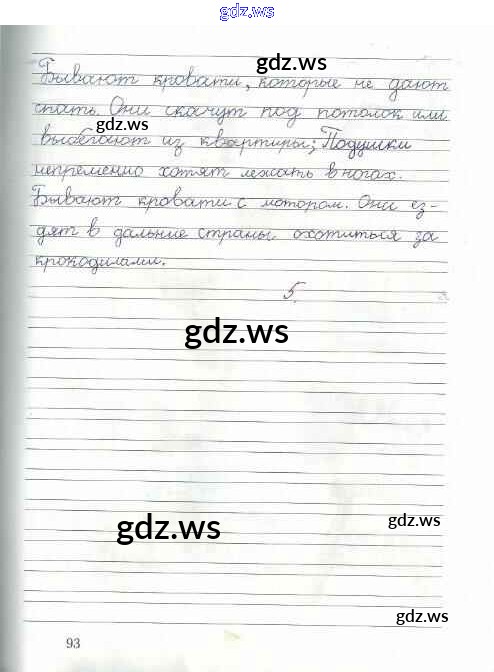 gdz.ws
gdz.ws
Бывают кровати, которые не дают
спать. Они скачут под потолок или
gdz.ws
выбегают из квартиры; Подушки
непременно хотят лежать в ногах.
Бывают кровати с мотором. Они ез-
дят в дальние страны охотиться за
крокодилами.
5.
gdz.ws
gdz.ws
gdz.ws
gdz.ws
93